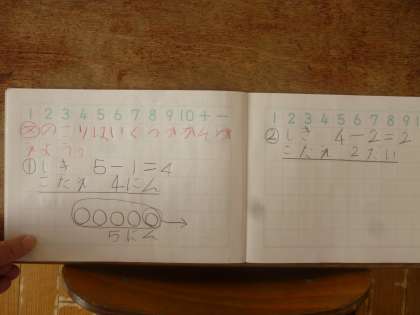 1 2 3 4 5 6 7 8 9 10 + −
めのこりはいくつかかんが
えよう。
① しき 5−1=4
こたえ 4にん
5にん
1 2 3 4 5 6 7 8 9
② しき 4−2=2
こたえ 2だい